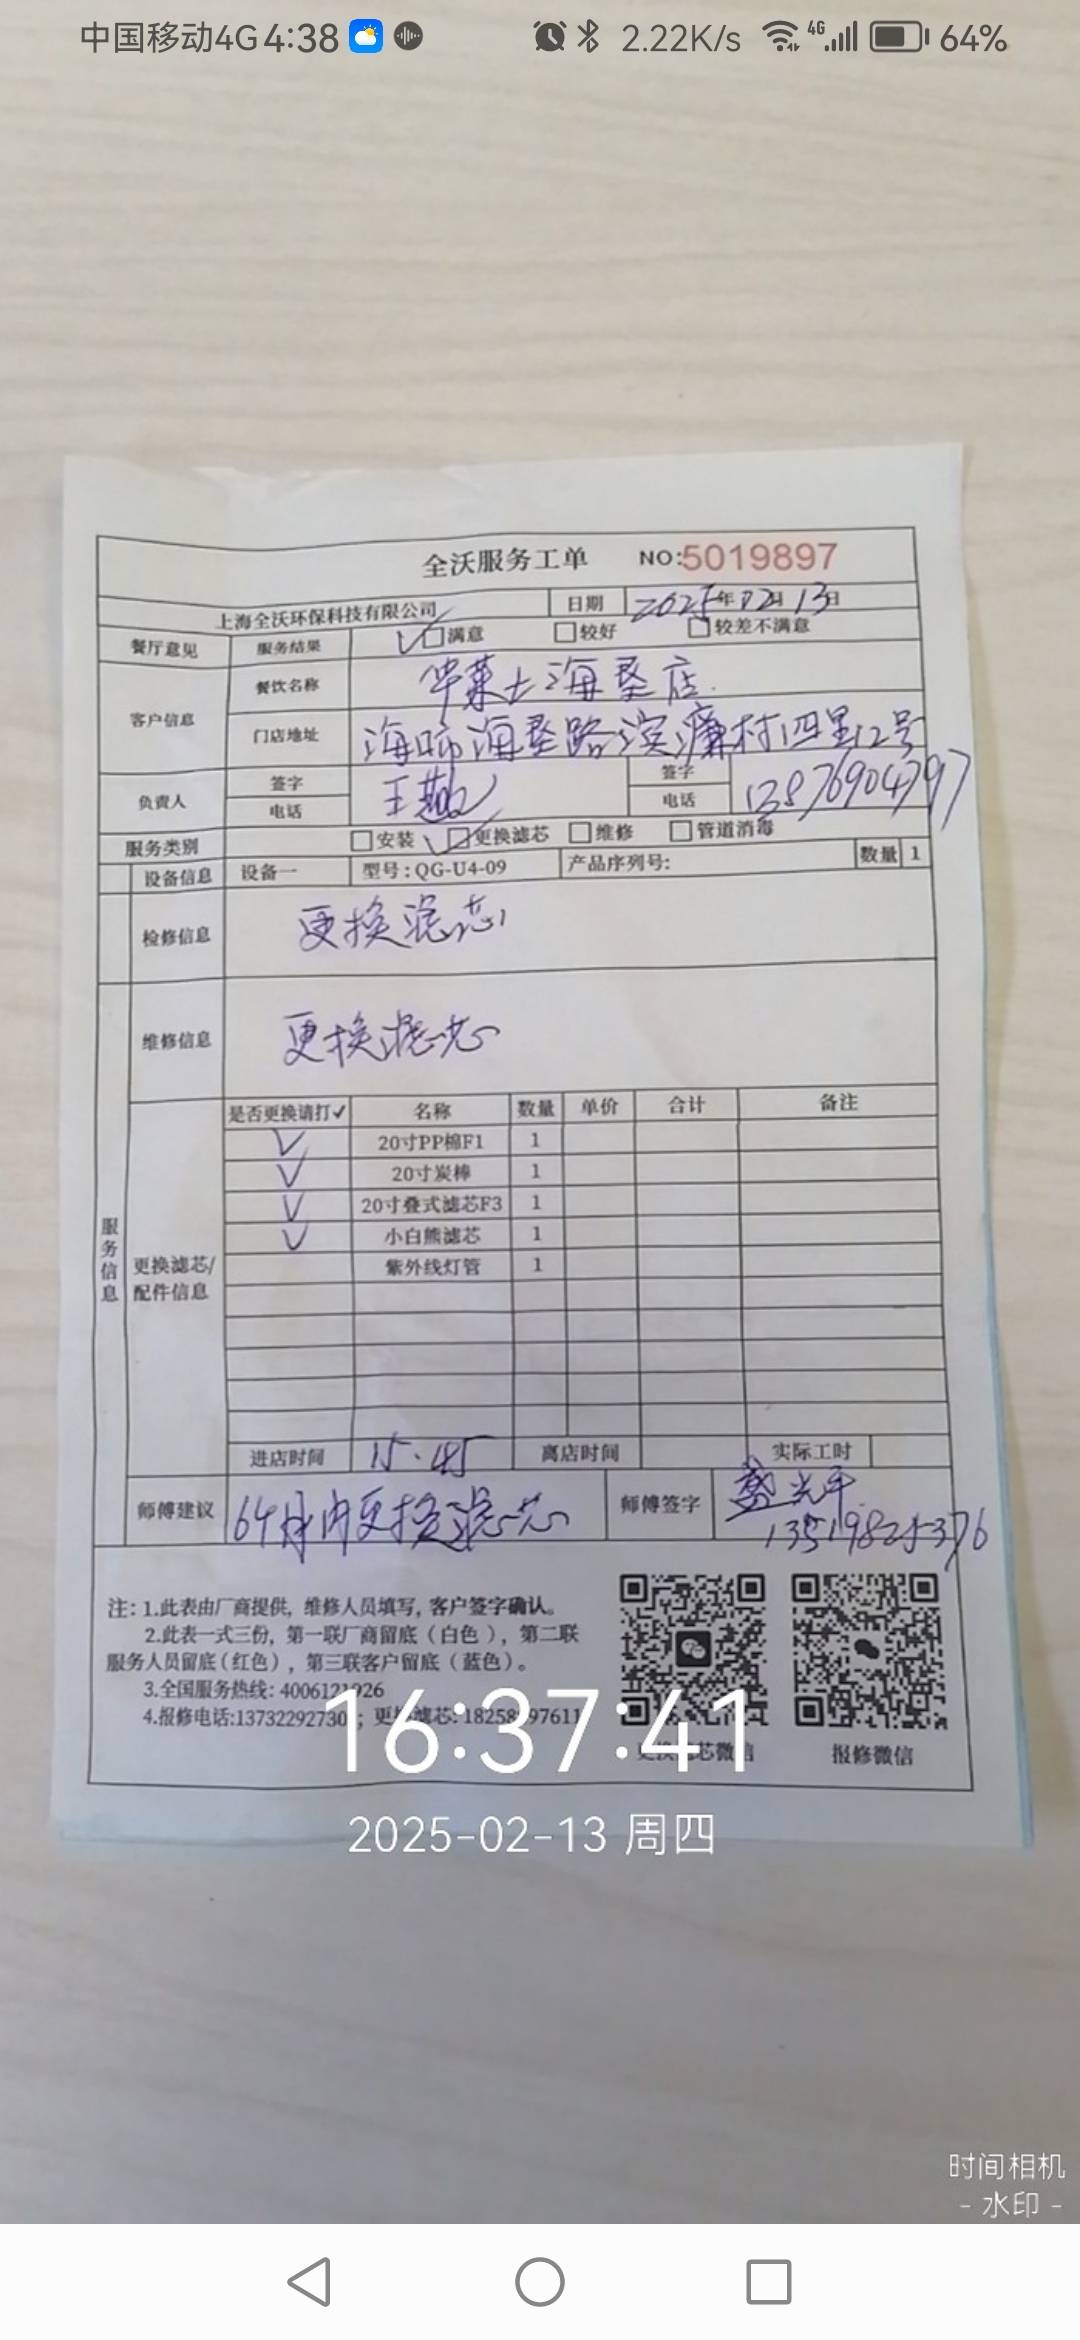 中国移动4G 4:38 2.22K/s 4G 64%
全沃服务工单 NO:5019897
上海全沃环保科技有限公司 日期 2025年02月13日
餐厅意见 服务结果 满意 较好 较差不满意
客户信息 餐饮名称 华莱士海垦店
门店地址 海口市海垦路滨濂村四里12号
负责人 签字 王 签字
电话 电话 13876904797
服务类别 安装 更换滤芯 维修 管道消毒
设备信息 设备一 型号:QG-U4-09 产品序列号: 数量 1
检修信息 更换滤芯
维修信息 更换滤芯
服务信息
更换滤芯/配件信息
是否更换请打✓ 名称 数量 单价 合计 备注
✓ 20寸PP棉F1 1
✓ 20寸炭棒 1
✓ 20寸叠式滤芯F3 1
✓ 小白熊滤芯 1
紫外线灯管 1
进店时间 15.45 离店时间 实际工时
师傅建议 6个月内更换滤芯 师傅签字 光平
13519825376
注:1.此表由厂商提供,维修人员填写,客户签字确认。
2.此表一式三份,第一联厂商留底(白色),第二联
服务人员留底(红色),第三联客户留底(蓝色)。
3.全国服务热线:
4.报修电话: ;更换滤芯:
更换滤芯微信 报修微信
16:37:41
2025-02-13 周四
时间相机
- 水印 -